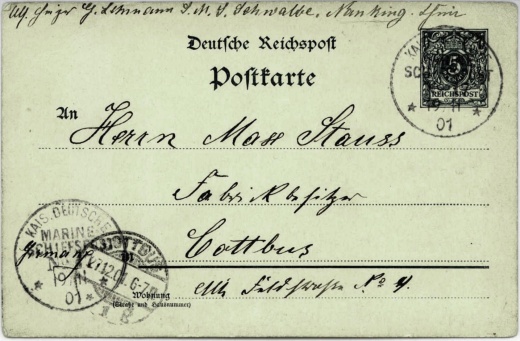 G. Lehmann S.M.S. Schwalbe, Nanking. China
Deutsche Reichspost
Postkarte
5
REICHSPOST
19 11
01
An
Herrn Max Stauss
Fabrikbesitzer
Cottbus
KAIS. DEUTSCHE
MARINE
SCHIFFSPOST
19 11
01
COTTBUS
6-7
Germany
Wohnung
(Straße und Hausnummer)
Feldstraße No 4.